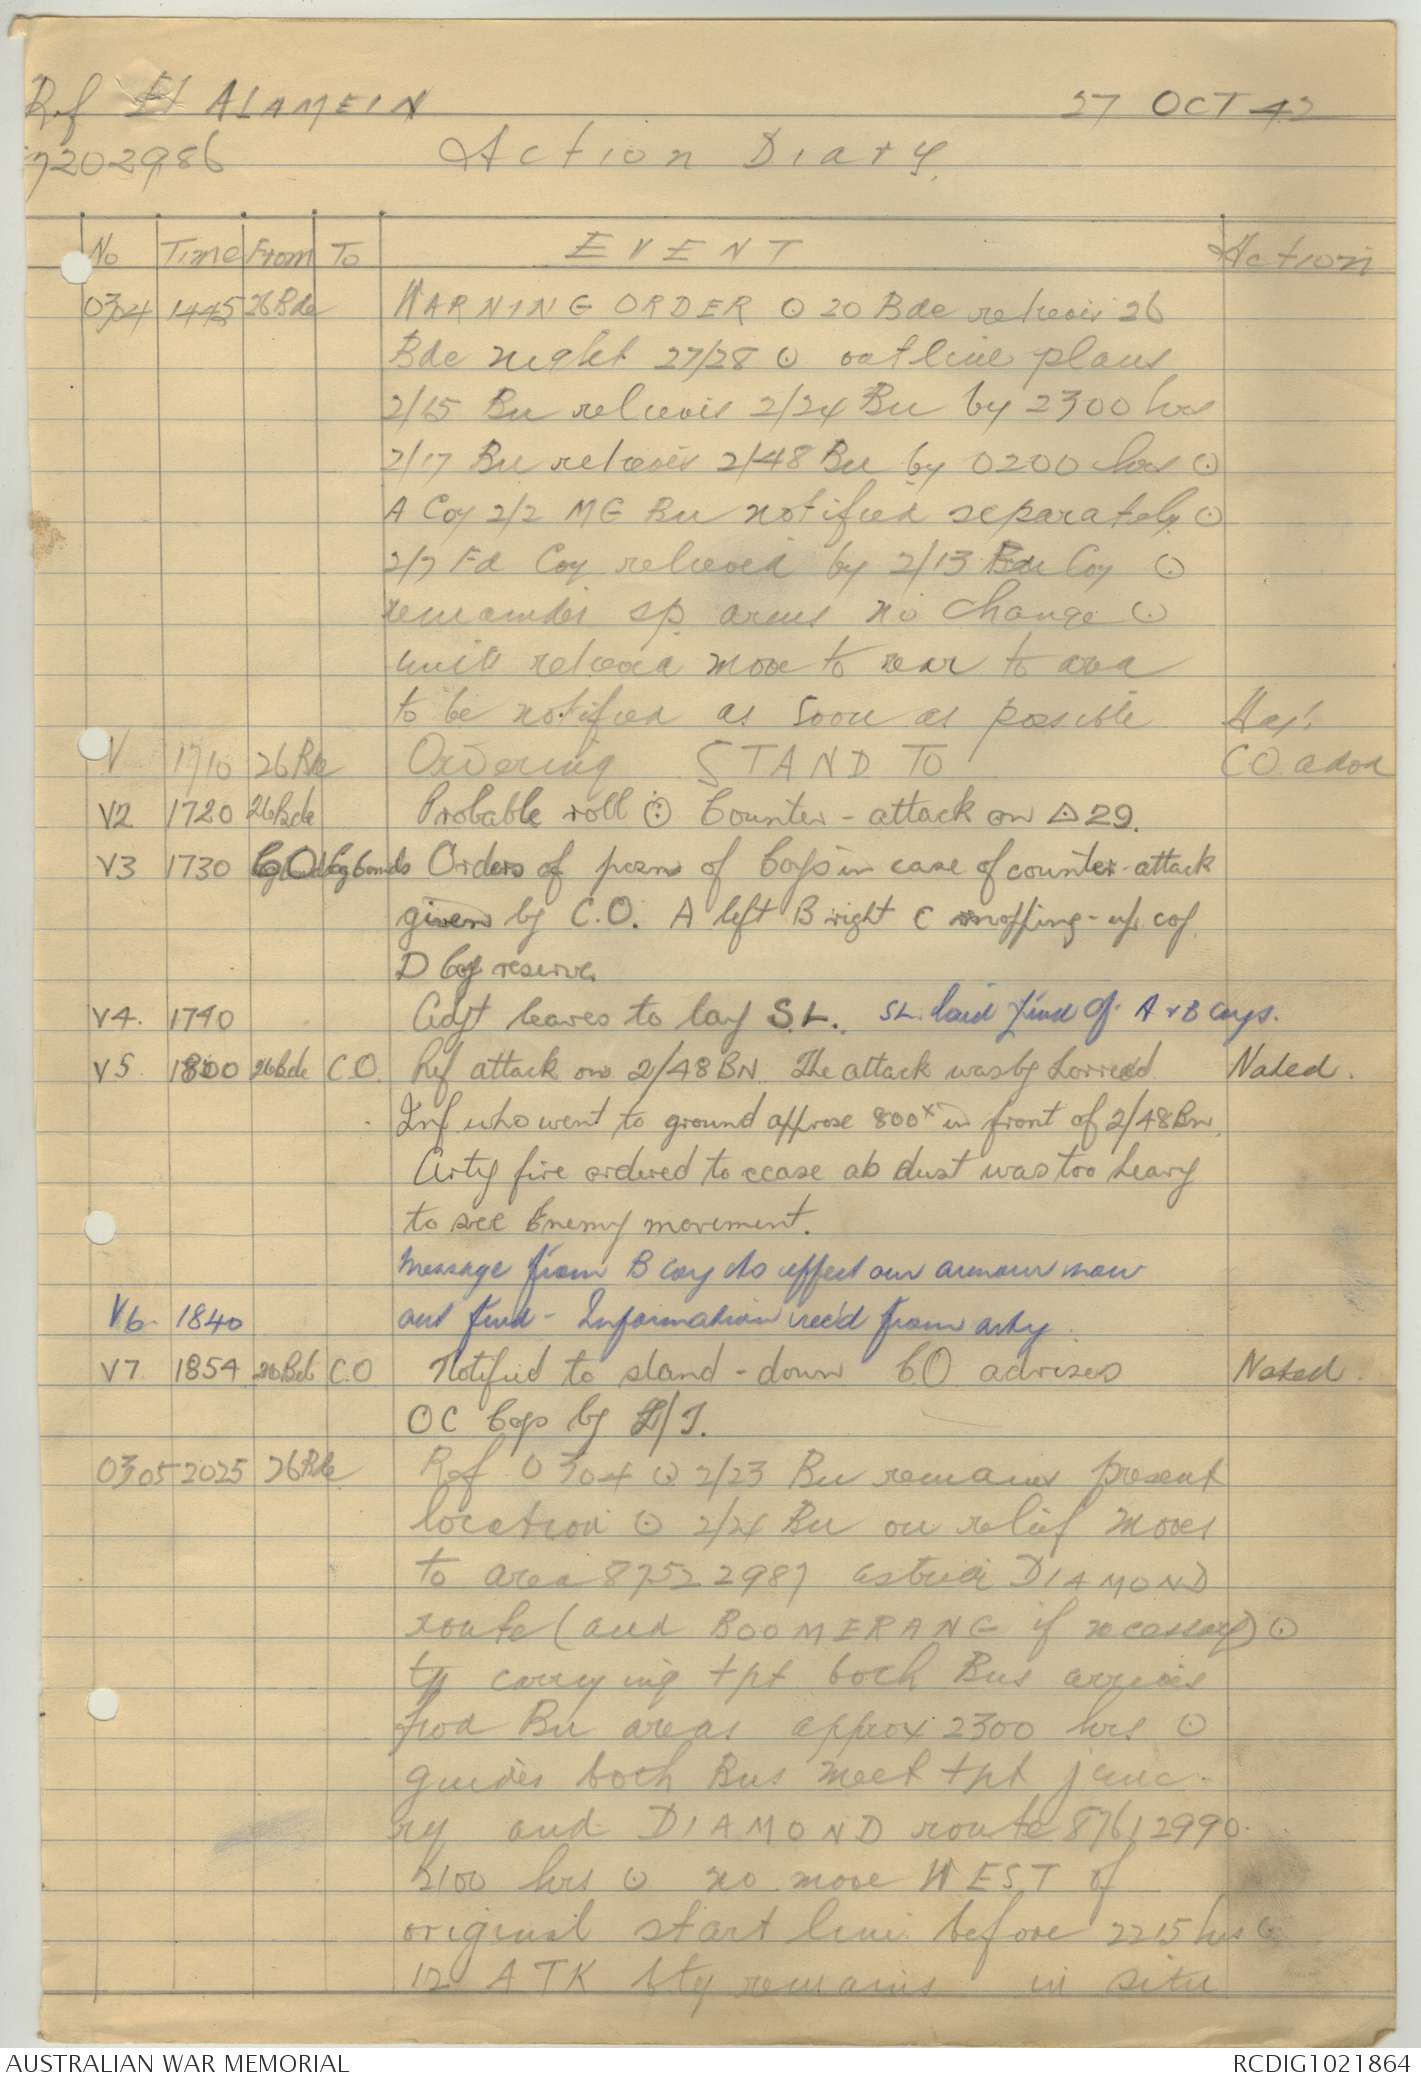 Ref El ALAMEIN 27 OCT 42
7202986 Action Diary.
No Time From To EVENT Action
0304 1445 26 Bde WARNING ORDER ⊙ 20 Bde relieves 26
Bde night 27/28 ⊙ outline plans
2/15 Bn relieves 2/24 Bn by 2300 hrs
2/17 Bn relieves 2/48 Bn by 0200 hrs ⊙
A Coy 2/2 MG Bn notified separately ⊙
2/7 Fd Coy relieved by 2/13 Coy ⊙
remainder sp arms no change ⊙
units relieved move to rear to area
to be notified as soon as possible
V 1710 26 Bde Ordering STAND TO CO
V2 1720 26 Bde Probable roll ⊙ Counter-attack on △ 29.
V3 1730 CO Orders of posns of Coys in case of counter-attack
given by C.O. A left B right C mopping-up coy
D Coy reserve.
V4. 1740 Adjt leaves to lay S.L. SL. laid fwd of A & B coys.
V5 1800 26 Bde C.O. Ref attack on 2/48 BN. The attack was by Lorried Noted.
Inf who went to ground approx 800x in front of 2/48 Bn.
Arty fire ordered to cease as dust was too heavy
to see Enemy movement.
Message from B coy to effect our armour now
V6 1840 out fwd - Information rec'd from arty.
V7 1854 26 Bde C.O Notified to stand-down CO advises Noted.
OC Coys by
0305 2025 26 Bde Ref 0304 ⊙ 2/23 Bn remains present
location ⊙ 2/24 Bn on relief moves
to area 87522987 astride DIAMOND
route (and BOOMERANG if necessary) ⊙
tp carrying tpt both Bns arrives
fwd Bn areas approx 2300 hrs ⊙
guides both Bns meet tpt junc.
ry and DIAMOND route 87612990
2100 hrs ⊙ no move WEST of
original start line before 2215 hrs ⊙
12 ATK bty remains in situ
AUSTRALIAN WAR MEMORIAL RCDIG1021864